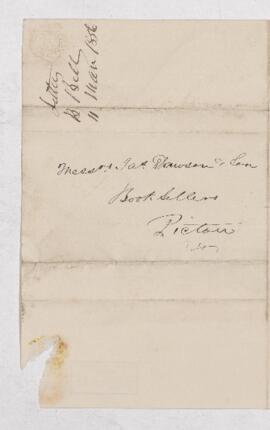 Letter
D. Bell
11 Mar 1856
Messrs Jas. Dawson & Son
Book Sellers
Pictou